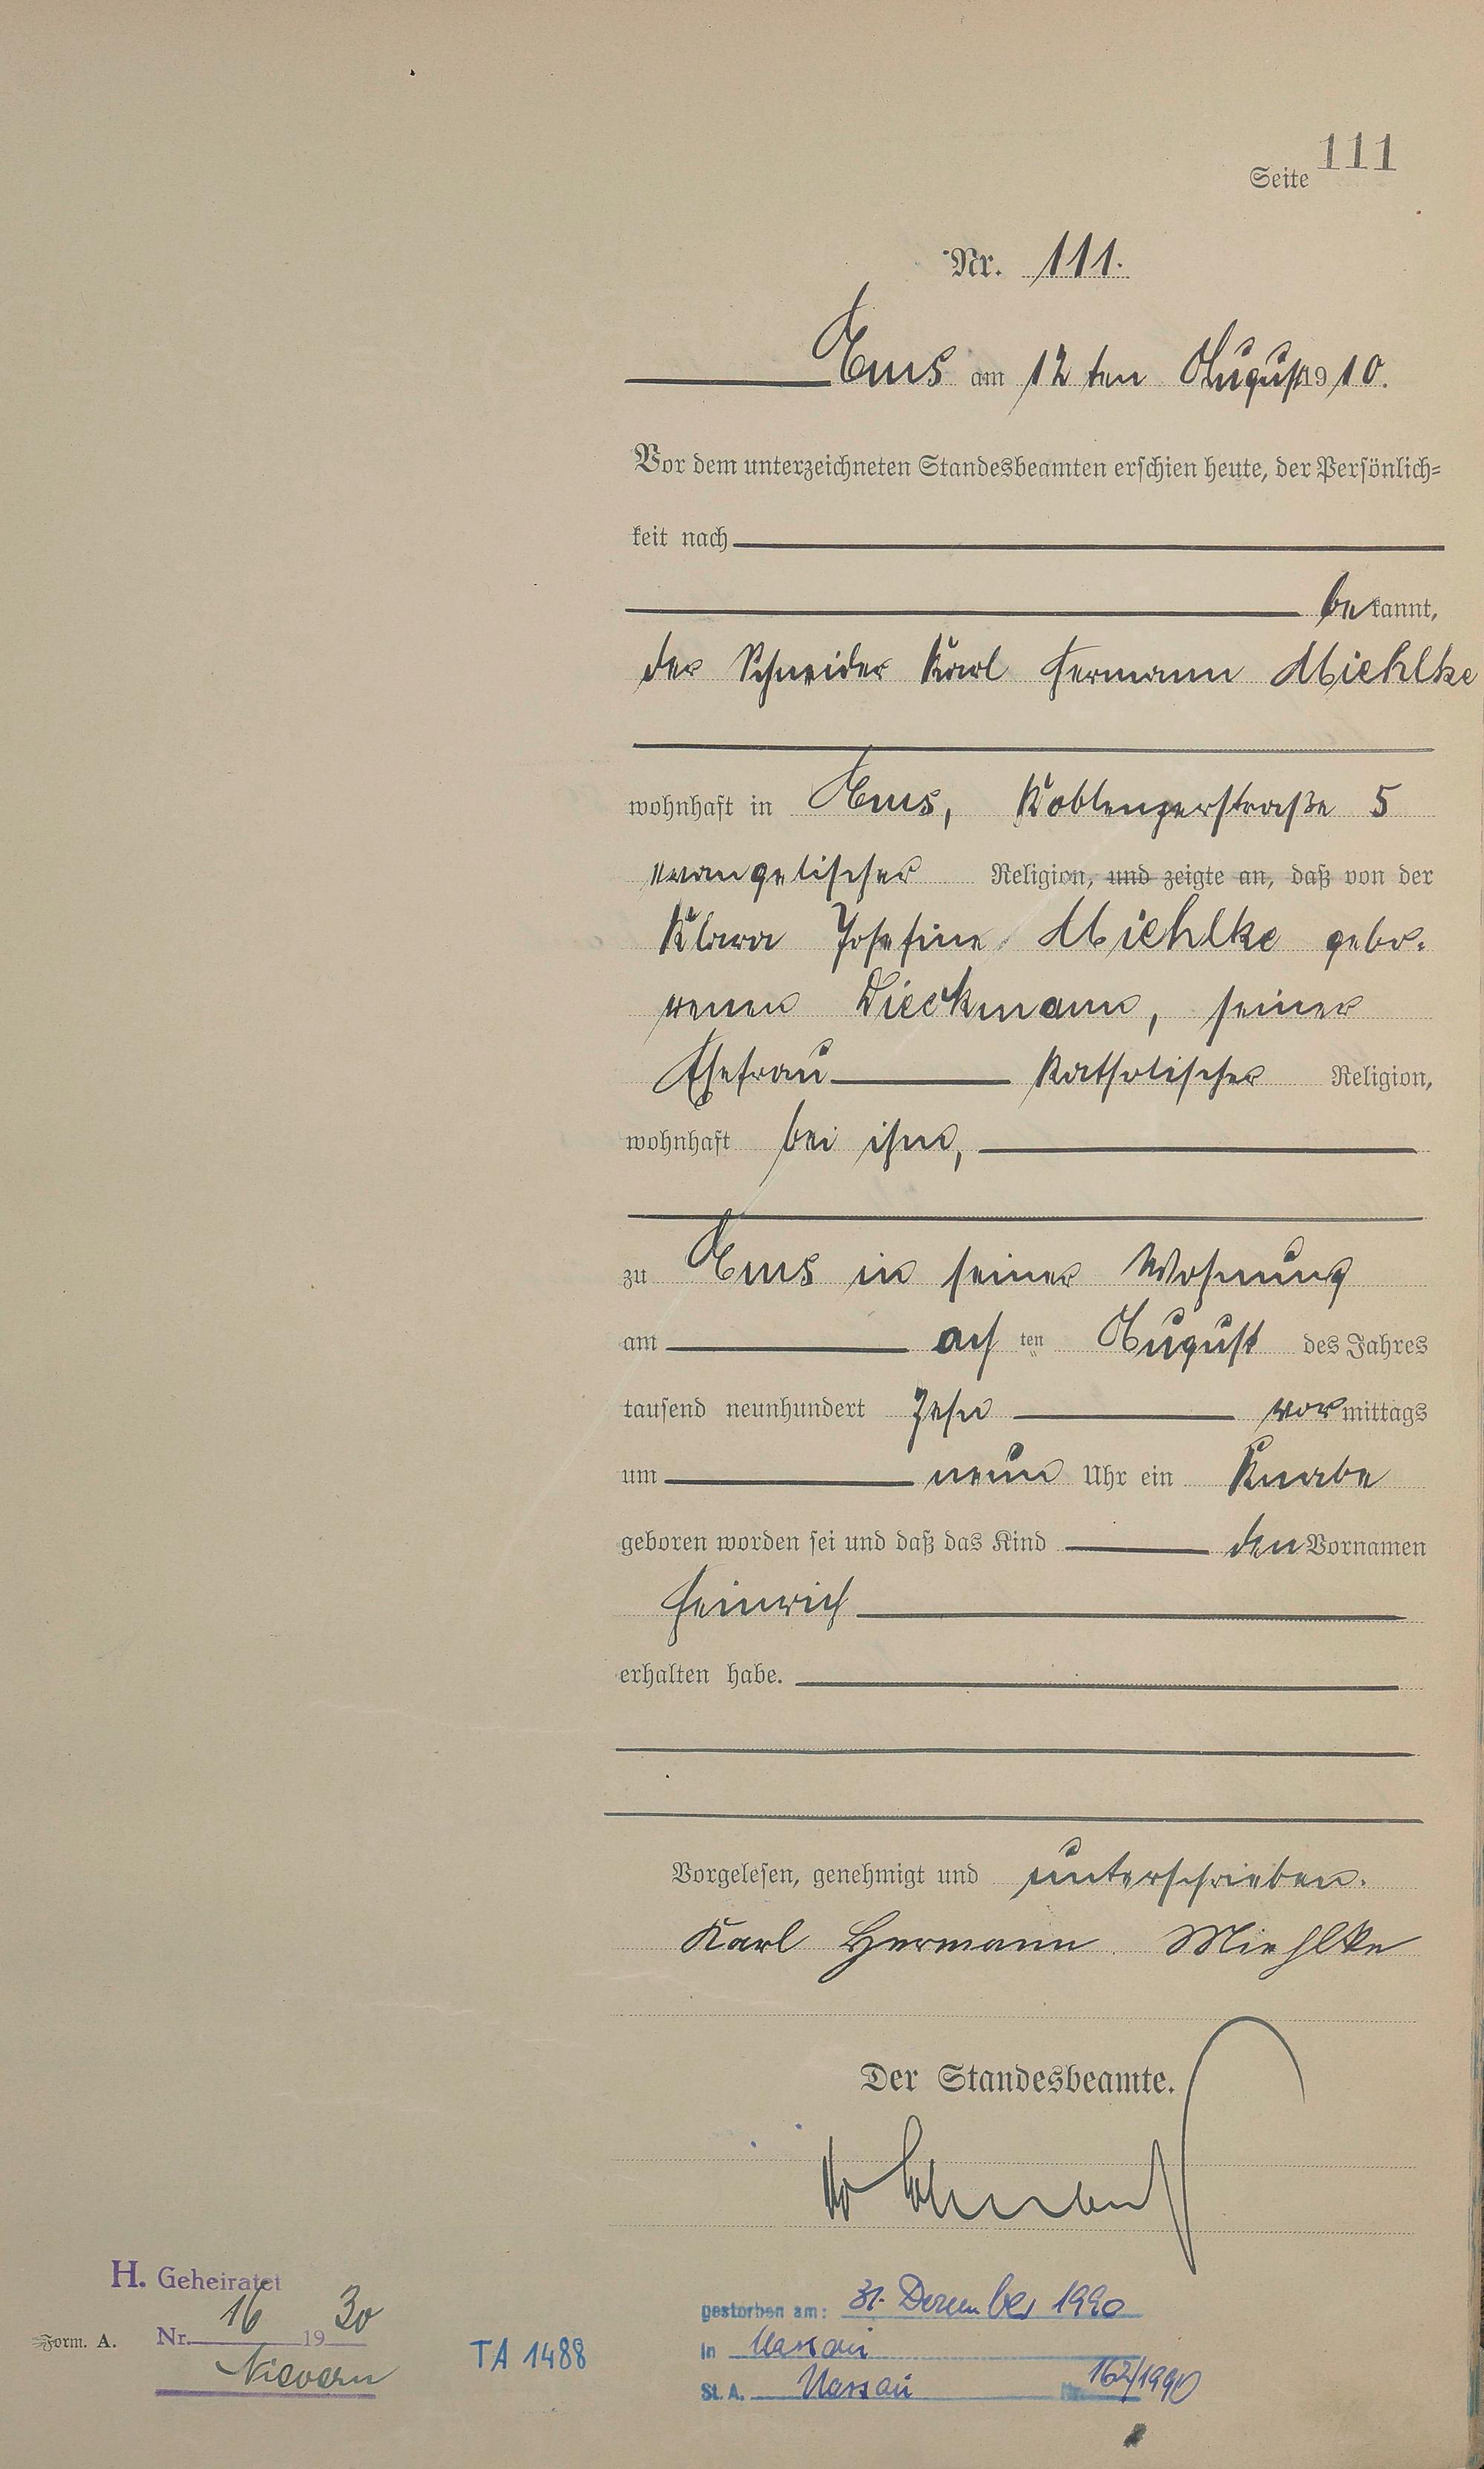 Seite 111
Nr. 111.
Ems am 12 ten August 1910.
Vor dem unterzeichneten Standesbeamten erschien heute, der Persönlich=
keit nach
bekannt,
der Schneider Karl Hermann Miehlke
wohnhaft in Ems, Koblenzerstraße 5
evangelischer Religion, und zeigte an, daß von der
Klara Josefine Miehlke gebo.
renen Dieckmann, seiner
Ehefrau katholischer Religion,
wohnhaft bei ihm,
zu Ems in seiner Wohnung
am ach ten August des Jahres
tausend neunhundert zehn vormittags
um neun Uhr ein Knabe
geboren worden sei und daß das Kind den Vornamen
Heinrich
erhalten habe.
Vorgelesen, genehmigt und unterschrieben.
Karl Hermann Miehlke
Der Standesbeamte.
H. Geheiratet
Form. A. Nr. 16 1930
Nievern
TA 1488
gestorben am: 31. Dezember 1990
in Nassau
St. A. Nassau Nr. 162/1990